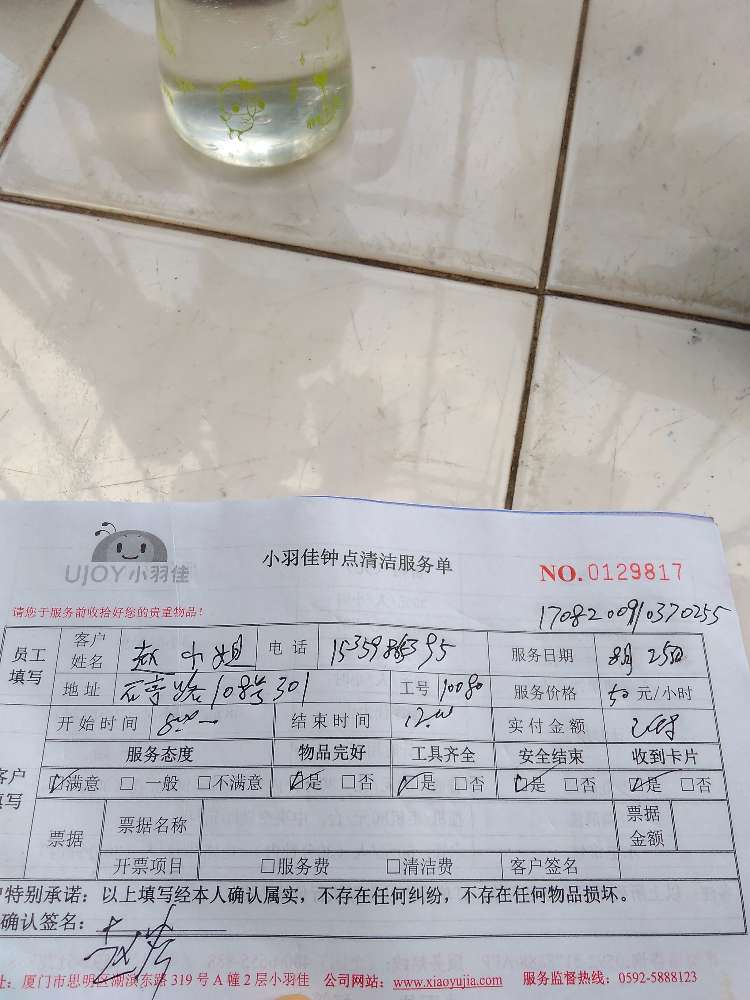 UJOY小羽佳
小羽佳钟点清洁服务单
NO.0129817
请您于服务前收拾好您的贵重物品!
1708200910370255
员工填写 客户姓名 赵小姐 电话 服务日期 8月25日
地址 108号301 工号 10080 服务价格 50元/小时
开始时间 8:00 结束时间 12:00 实付金额
服务态度 物品完好 工具齐全 安全结束 收到卡片
客户填写 ☑满意 □一般 □不满意 ☑是 □否 ☑是 □否 ☑是 □否 ☑是 □否
票据 票据名称 票据金额
开票项目 □服务费 □清洁费 客户签名
户特别承诺：以上填写经本人确认属实，不存在任何纠纷，不存在任何物品损坏。
确认签名：
址：厦门市思明区湖滨东路319号A幢2层小羽佳 公司网站：www.xiaoyujia.com 服务监督热线：0592-5888123